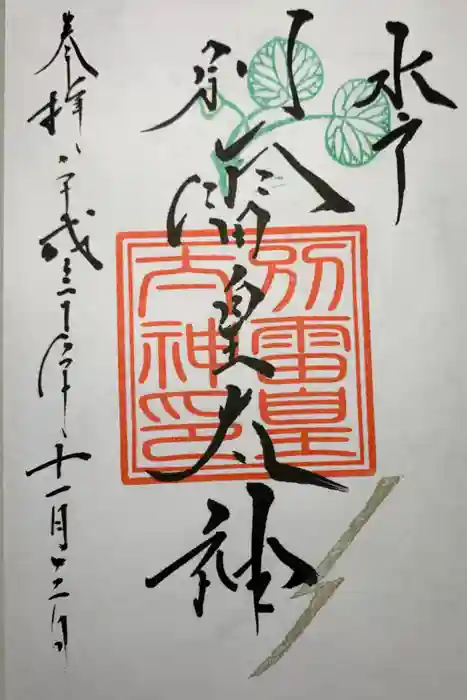 水戸
別雷皇太神
別雷皇
太神印
奉拝 平成三十年十一月十二日